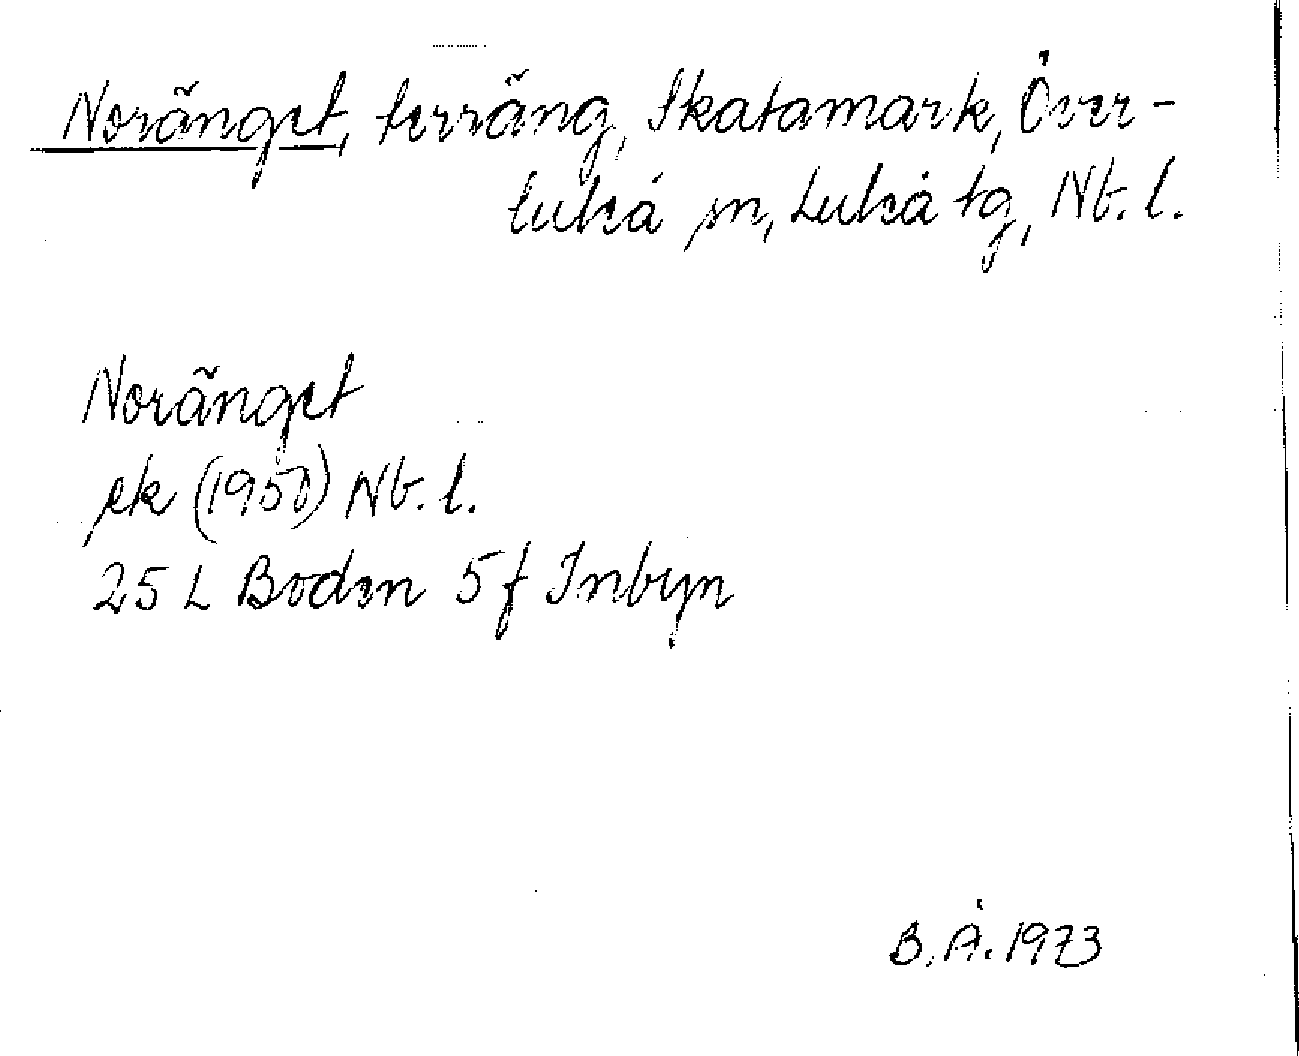 Noränget, terräng, Skatamark, Över-
luleå sn, Luleå tg, Nb. l.
Noränget
ek (1950) Nb. l.
25 L Boden 5 f Inbyn
B. Å. 1973